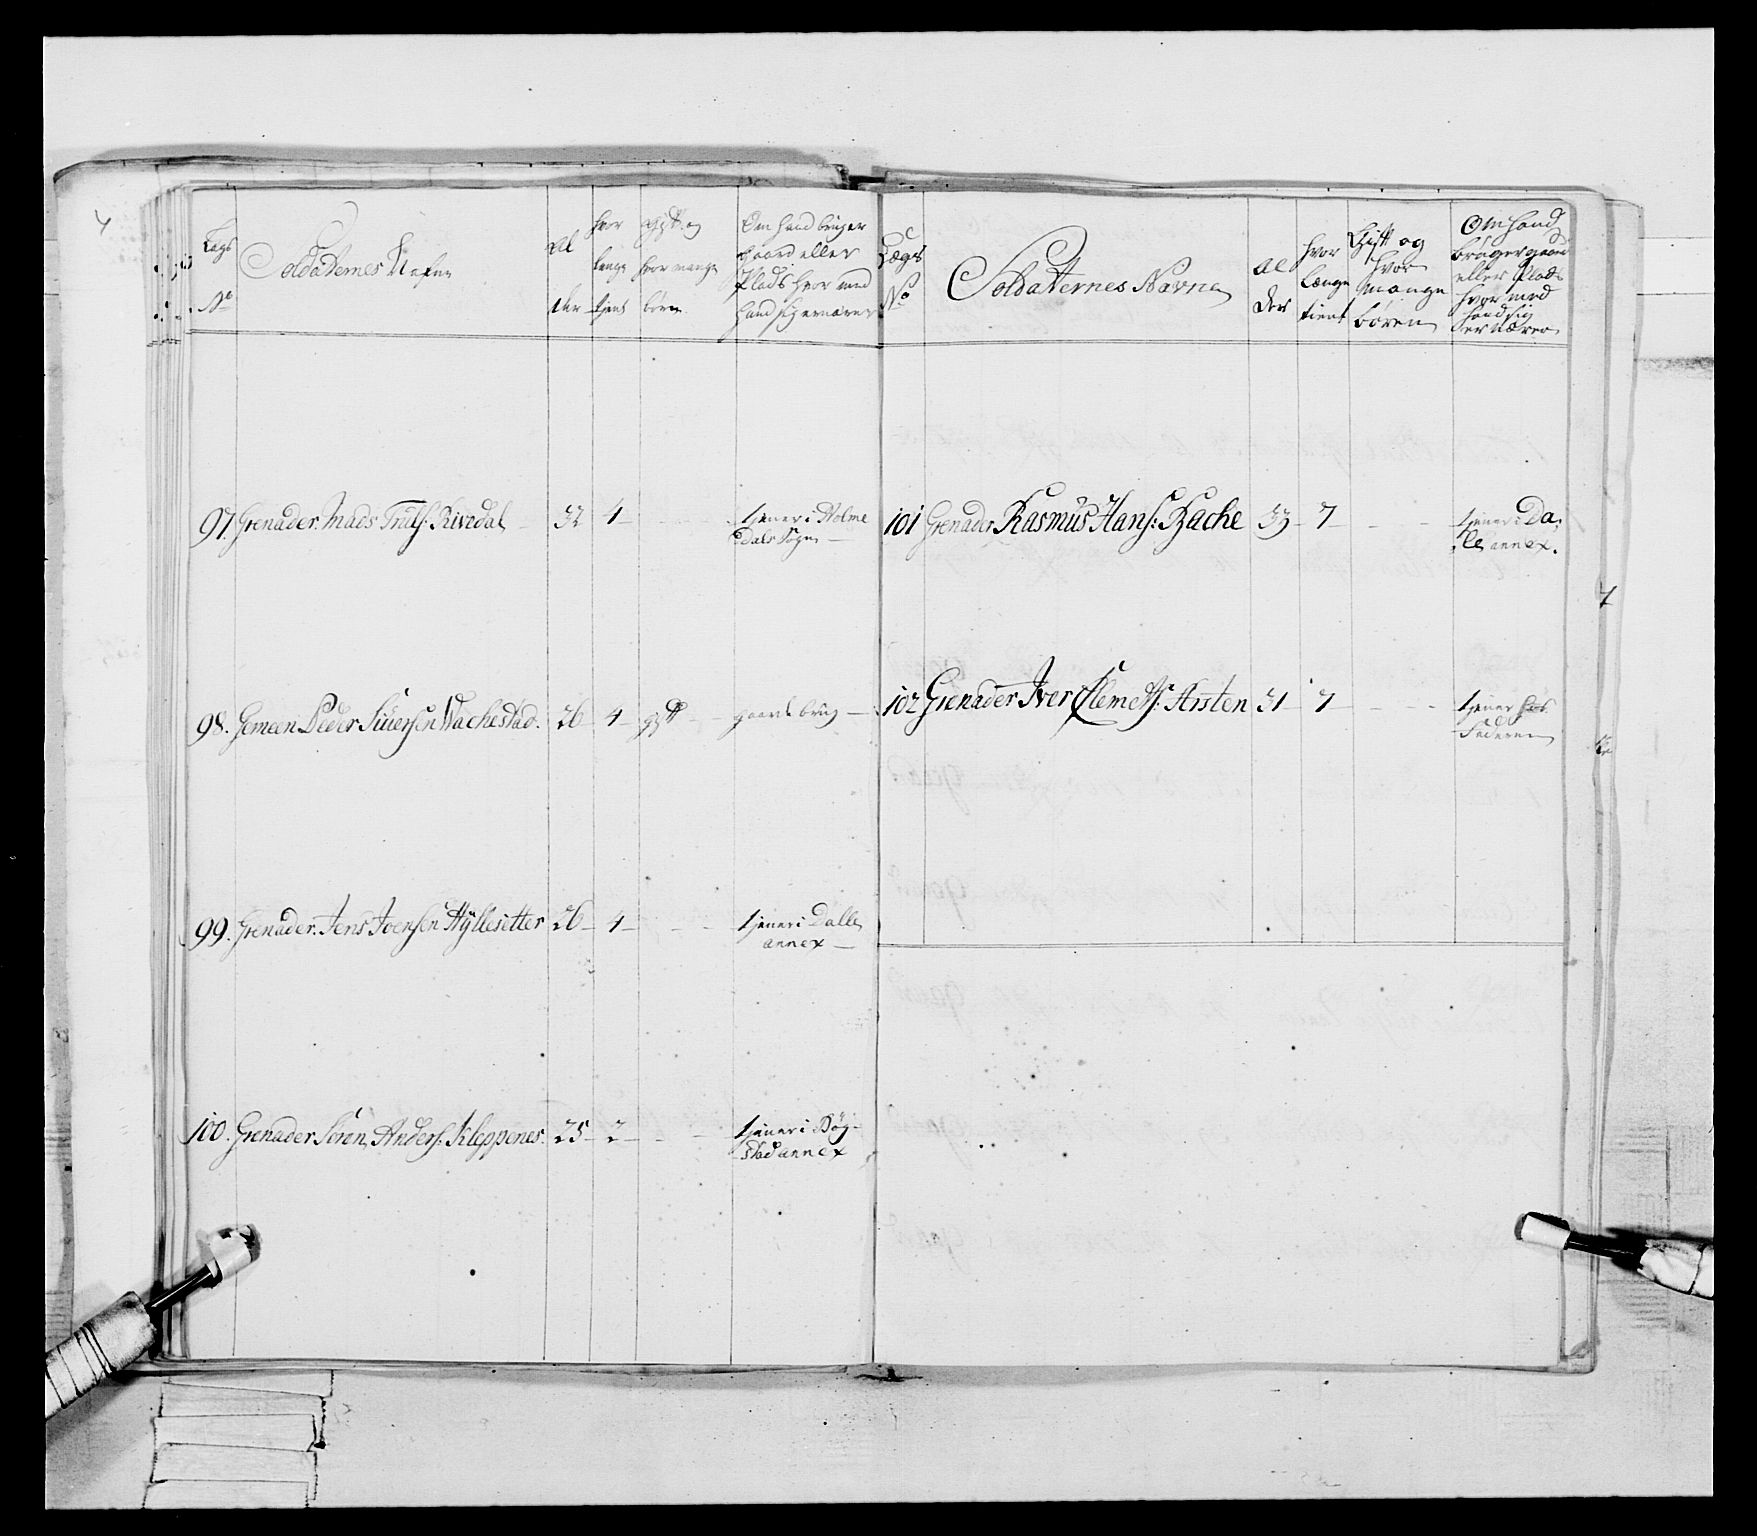 Lægs
No
Soldaternes Nafne
Al
der
hvor
længe
tjent
gift og
hvor mange
børn
Om hand bruger
gaard eller
Plads hvor med
hand sig ernærer
97. Grenader. Mads Truls: Rivedal 32 4 tjener i Holme
dals Sogn
98. Gemeen Peder Siuersen Wachestad. 26 4 gift gaard brug
99. Grenader. Jens Joensen Hÿllesetter 26 4 tjener i Dalle
annex
100. Grenader Sören Anders: Kleppenes. 25 2 tjener i
stad annex
Lægs
No
Soldaternes Navne
Al
der
hvor
længe
tient
Gift og
hvor
mange
bören
Om hand
bruger gaard
eller Plads
hvor med
hand sig
ernærer
101 Grenader Rasmus Hans: Bache 33 7 tjener i Da-
le annex.
102 Grenader Iver Clemets: Arsten 31 7 tjener hos
Faderen